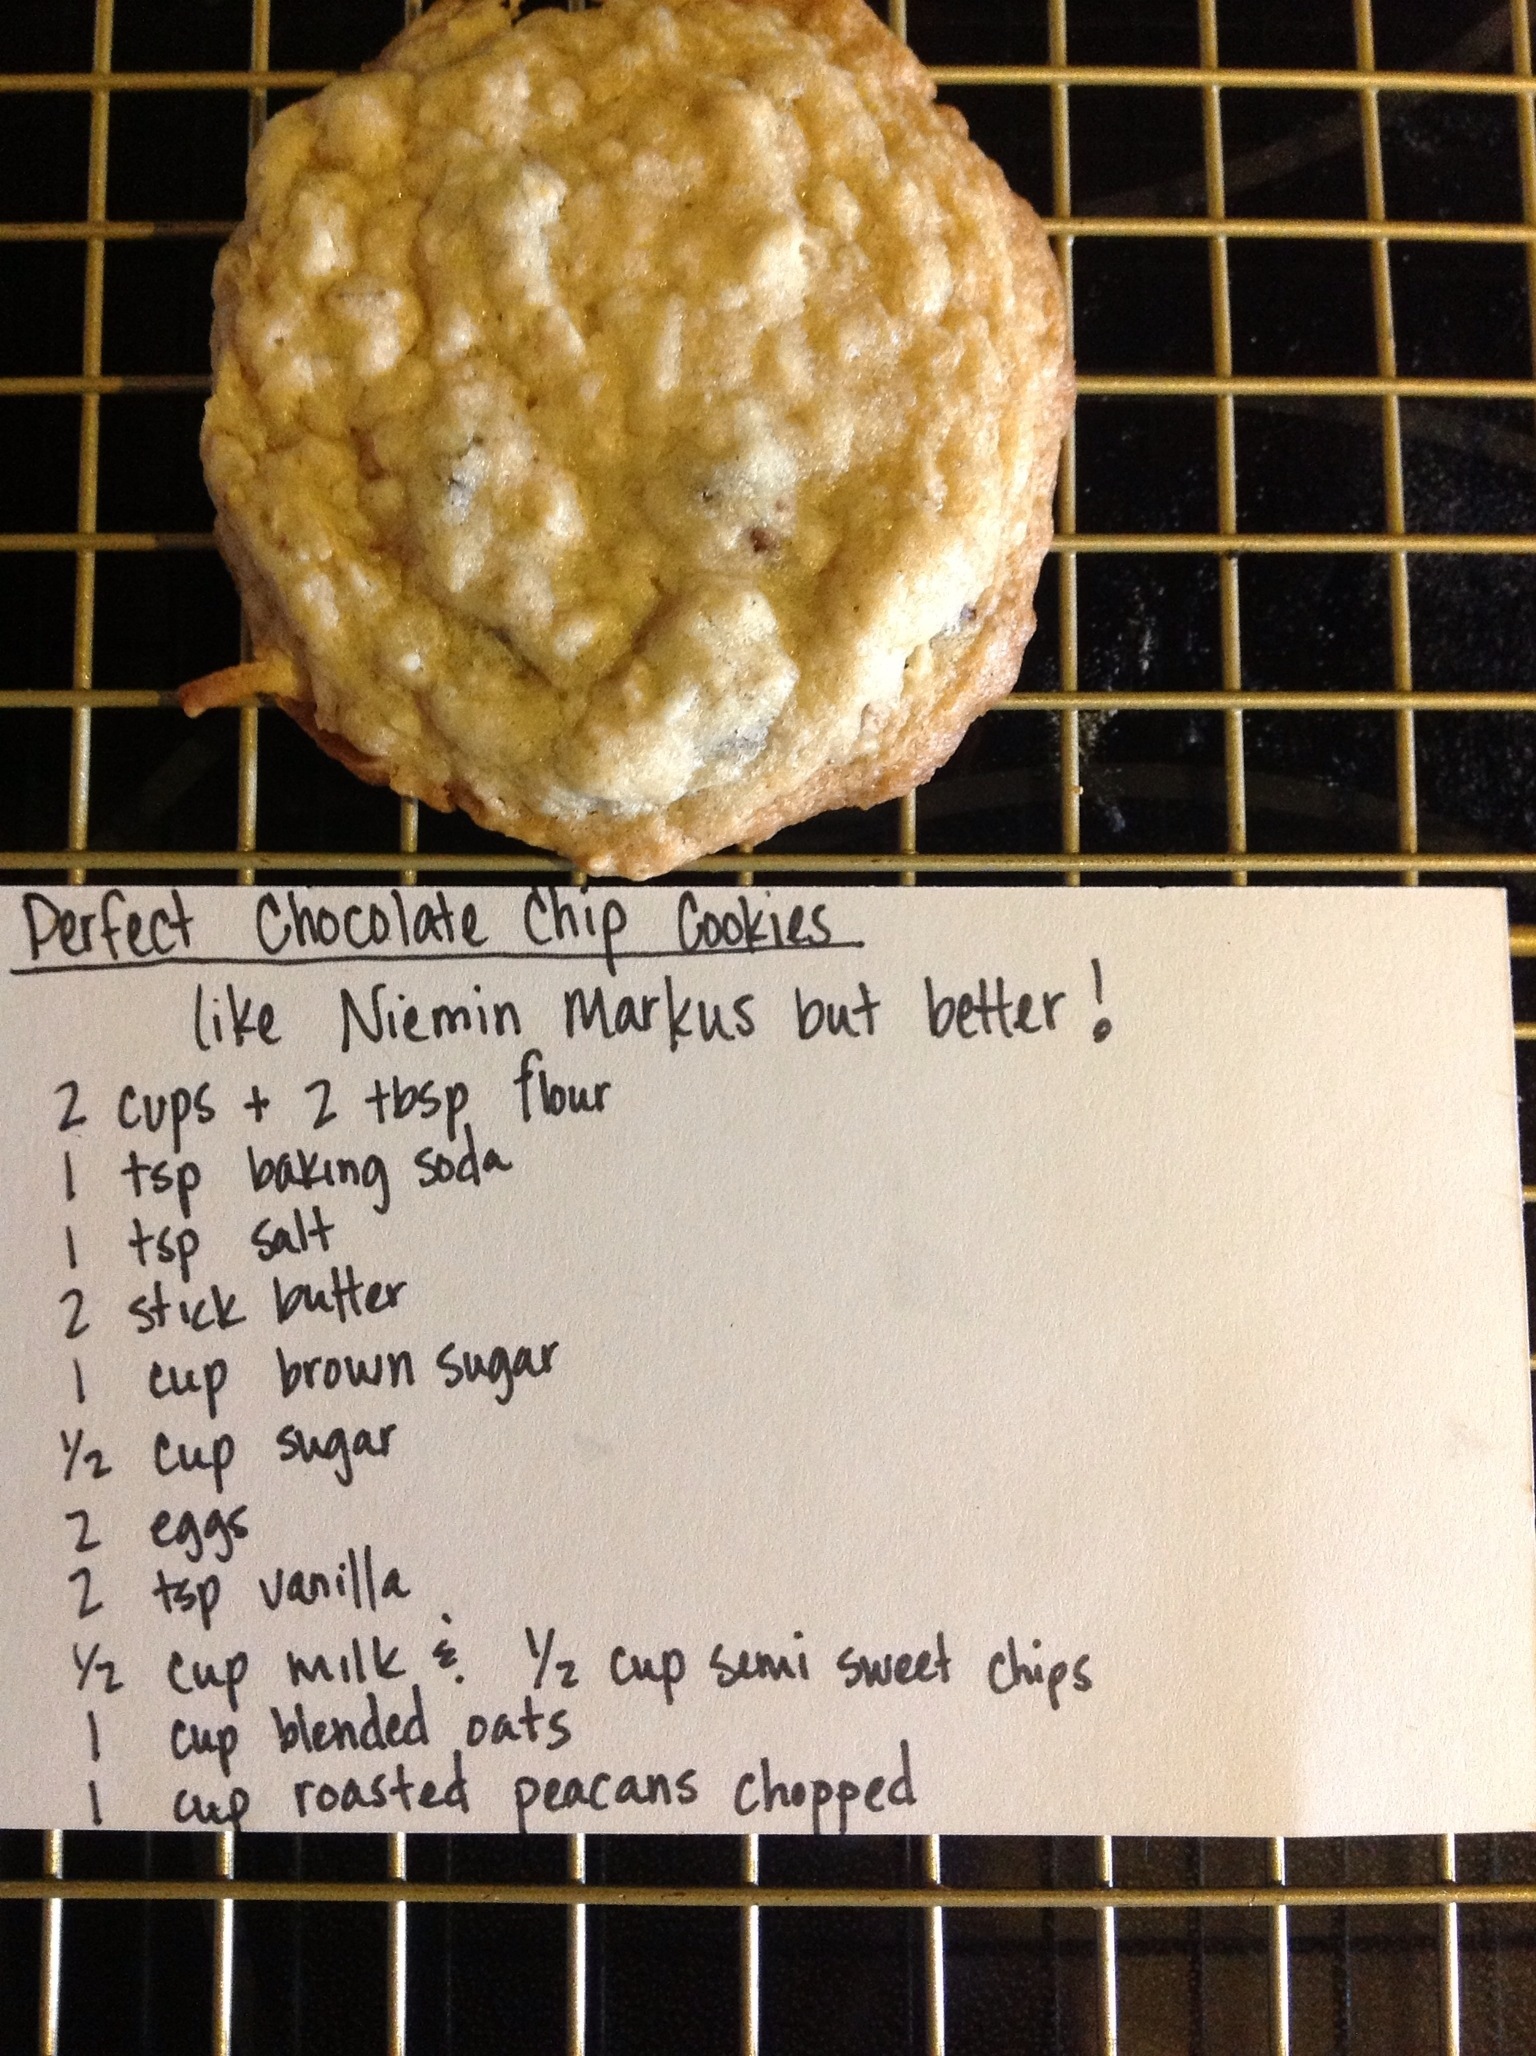 Perfect Chocolate Chip Cookies
like Niemin Markus but better!
2 cups + 2 tbsp flour
1 tsp baking soda
1 tsp salt
2 stick butter
1 cup brown sugar
1/2 cup sugar
2 eggs
2 tsp vanilla
1/2 cup milk & 1/2 cup semi sweet chips
1 cup blended oats
1 cup roasted peacans chopped